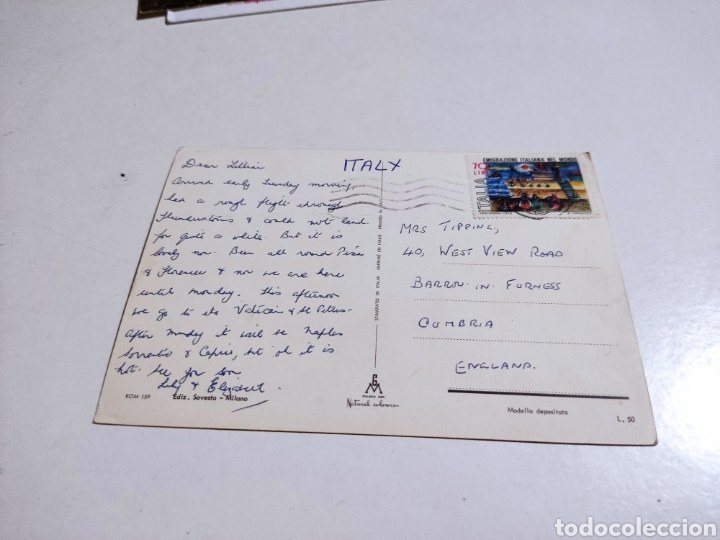 Dear Lillian
Arrived early Tuesday morning,
had a rough flight through
thunderstorms & could not land
for quite a while. But it is
lovely now. Been all round Pisa
& Florence & now we are here
until Monday. This afternoon
we go to the Vatican & St Peters.
After Monday it will be Naples
Sorrento & Capri, but oh it is
hot. See you soon
& Elizabeth.
ITALY
70
LIRE
EMIGRAZIONE ITALIANA NEL MONDO
ITALIA
MRS TIPPING,
40, WEST VIEW ROAD
BARROW-IN-FURNESS
CUMBRIA
ENGLAND.
ROM 159
Ediz. Sovesta - Milano
STAMPATO IN ITALIA
Natural colours
Modello depositato
L. 50
todocoleccion